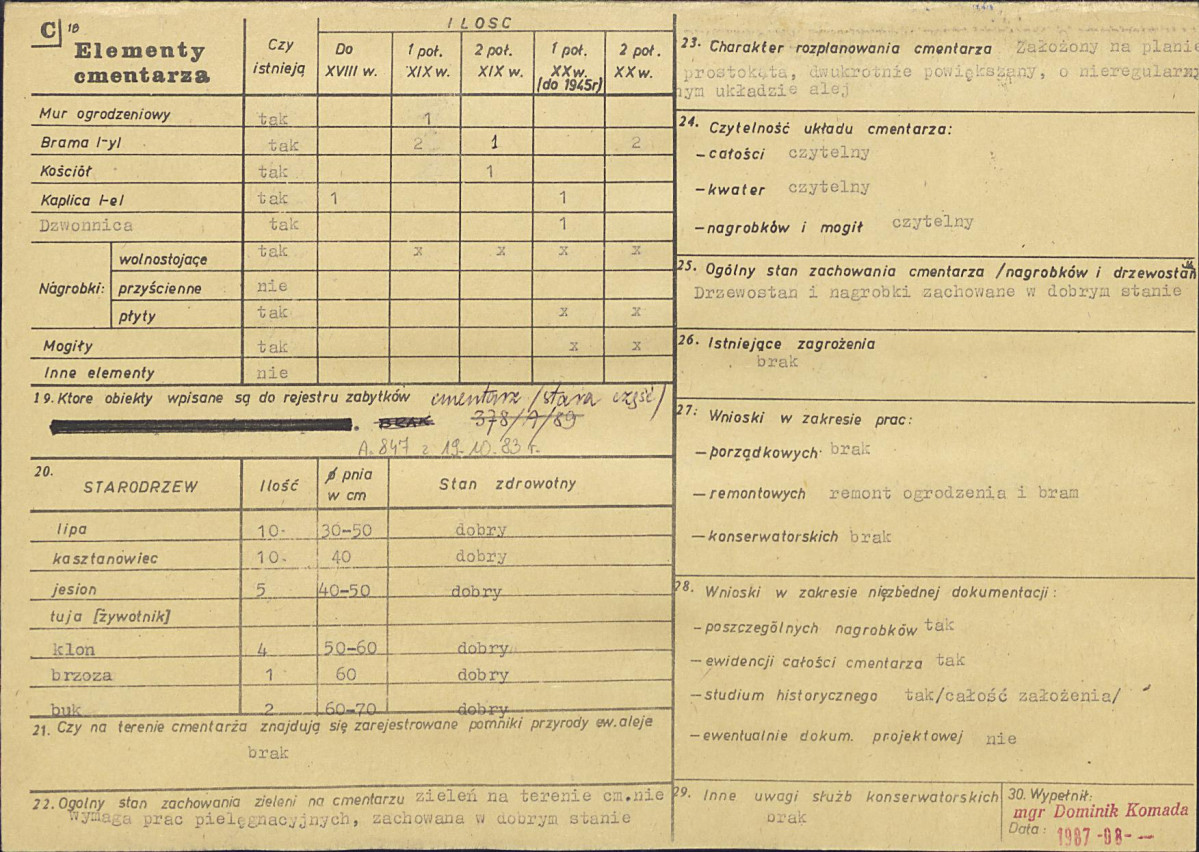 C 18
Elementy cmentarza
Czy istnieją
ILOSC
Do XVIII w.
1 poł. XIX w.
2 poł. XIX w.
1 poł. XX w. (do 1945r)
2 poł. XX w.
Mur ogrodzeniowy tak 1
Brama /-y/ tak 2 1 2
Kościół tak 1
Kaplica /-e/ tak 1 1
Dzwonnica tak 1
Nagrobki: wolnostojące tak x x x x
przyścienne nie
płyty tak x x
Mogiły tak x x
Inne elementy nie
19. Ktore obiekty wpisane są do rejestru zabytków cmentarz /stara część/
BRAK 378/A/89
A. 847 z 19. 10. 83 r.
20. STARODRZEW Ilość ø pnia w cm Stan zdrowotny
lipa 10 30-50 dobry
kasztanowiec 10 40 dobry
jesion 5 40-50 dobry
tuja [żywotnik]
klon 4 50-60 dobry
brzoza 1 60 dobry
buk 2 60-70 dobry
21. Czy na terenie cmentarza znajdują się zarejestrowane pomniki przyrody ew. aleje
brak
22. Ogolny stan zachowania zieleni na cmentarzu zieleń na terenie cm. nie
wymaga prac pielęgnacyjnych, zachowana w dobrym stanie
23. Charakter rozplanowania cmentarza Założony na planie
prostokąta, dwukrotnie powiększany, o nieregularny
nym układzie alej
24. Czytelność układu cmentarza:
- całości czytelny
- kwater czytelny
- nagrobków i mogił czytelny
25. Ogólny stan zachowania cmentarza /nagrobków i drzewostan
Drzewostan i nagrobki zachowane w dobrym stanie
26. Istniejące zagrożenia
brak
27. Wnioski w zakresie prac:
- porządkowych brak
- remontowych remont ogrodzenia i bram
- konserwatorskich brak
28. Wnioski w zakresie niezbędnej dokumentacji:
- poszczególnych nagrobków tak
- ewidencji całości cmentarza tak
- studium historycznego tak/całość założenia/
- ewentualnie dokum. projektowej nie
29. Inne uwagi służb konserwatorskich
brak
30. Wypełnił:
mgr Dominik Komada
Data: 1987 -08- --